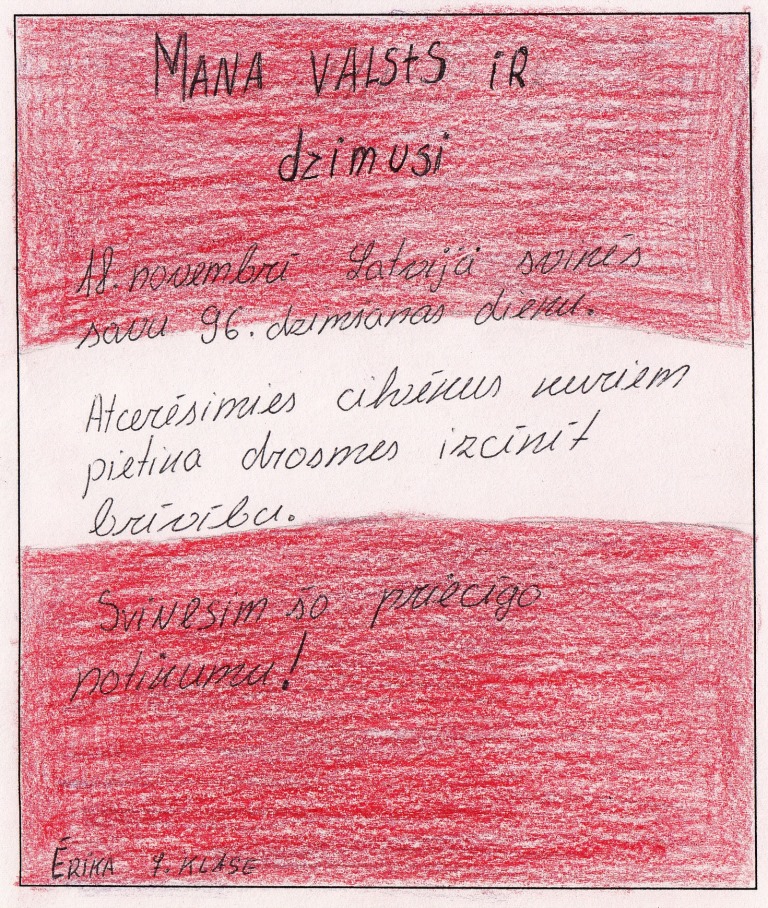 Mana valsts ir
dzimusi
18. novembrī Latvijā svinēs
savu 96. dzimšanas dienu.
Atcerēsimies cilvēkus kuriem
pietika drosmes izcīnīt
brīvību.
Svinēsim šo priecīgo
notikumu!
Ērika 7. klase